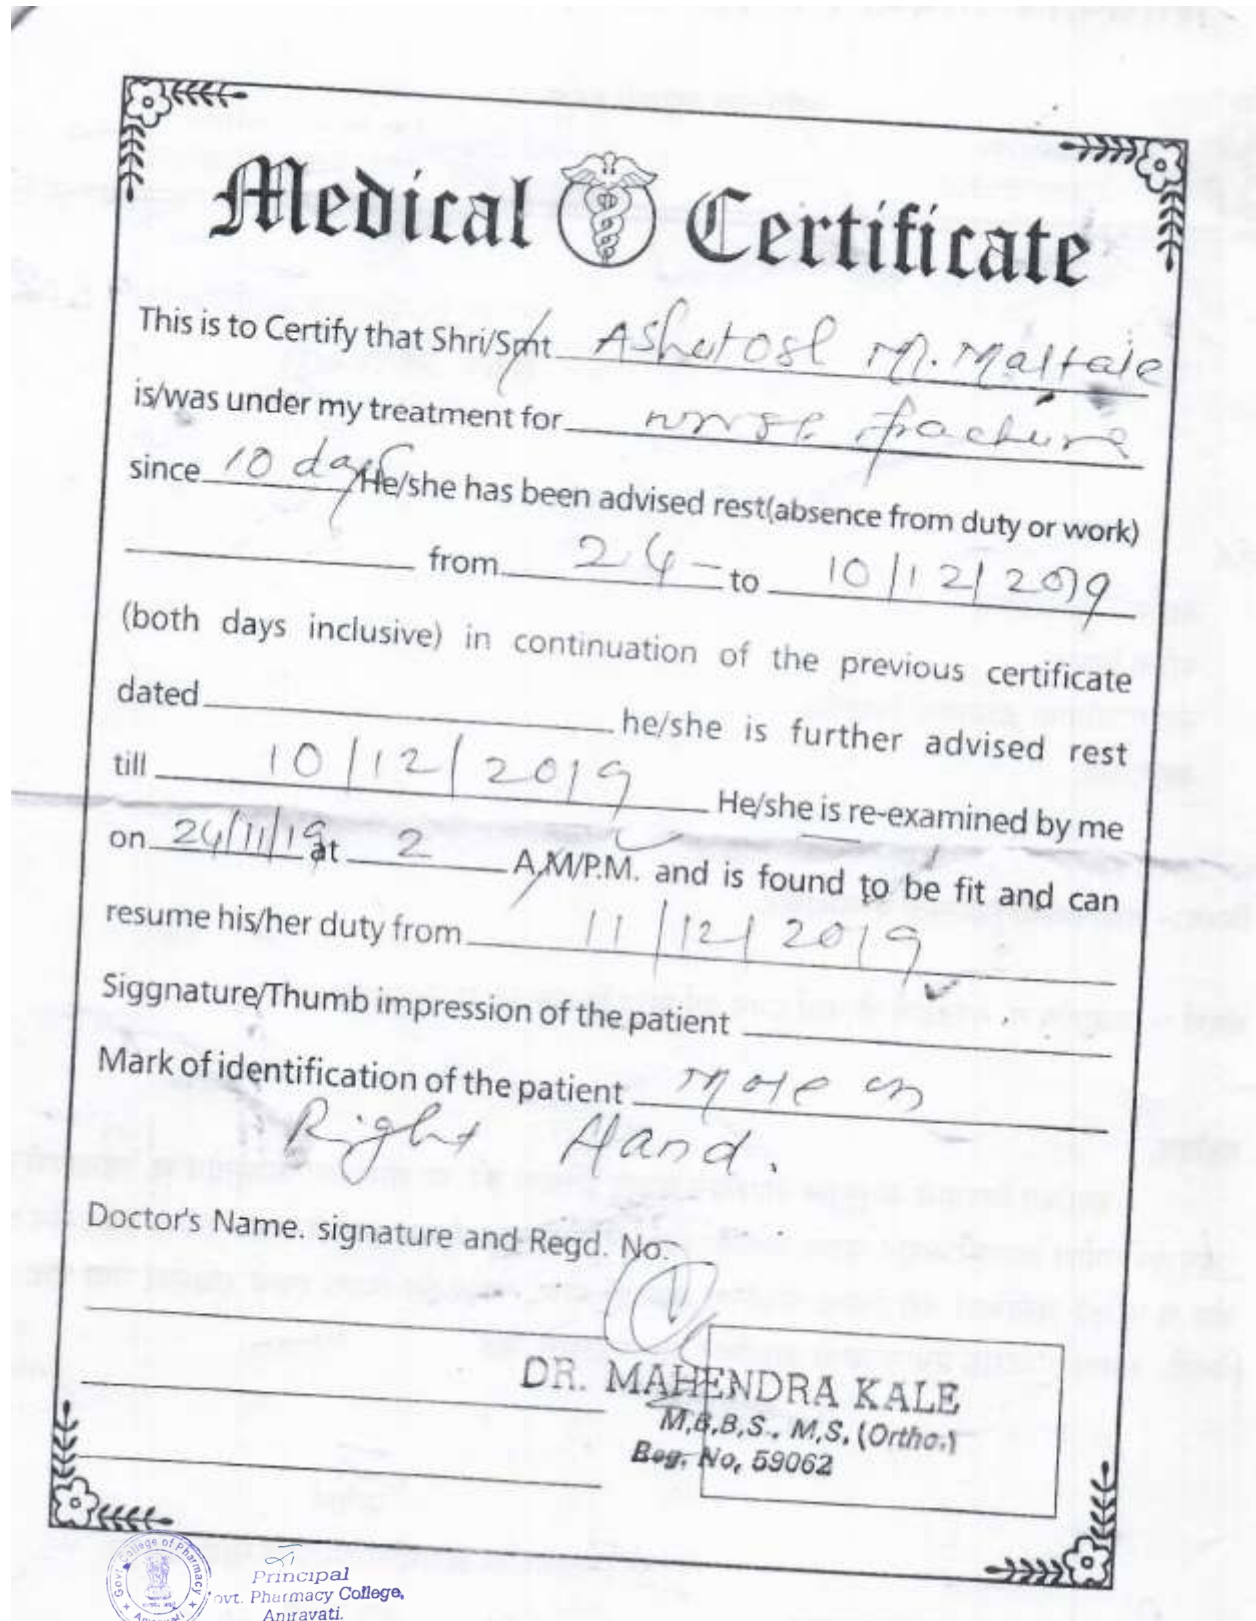 Medical Certificate
This is to Certify that Shri/Smt Ashutosh M. Maltale
is/was under my treatment for fracture
since 10 days He/she has been advised rest(absence from duty or work)
from 24 - to 10/12/2019
(both days inclusive) in continuation of the previous certificate
dated he/she is further advised rest
till 10/12/2019 He/she is re-examined by me
on 24/11/19 at 2 A.M/P.M. and is found to be fit and can
resume his/her duty from 11/12/2019
Siggnature/Thumb impression of the patient
Mark of identification of the patient Mole on
Right Hand.
Doctor's Name. signature and Regd. No.
DR. MAHENDRA KALE
M.B.B.S., M.S. (Ortho.)
Reg. No, 59062
Govt. College of Pharmacy
Principal
Govt. Pharmacy College,
Amravati.